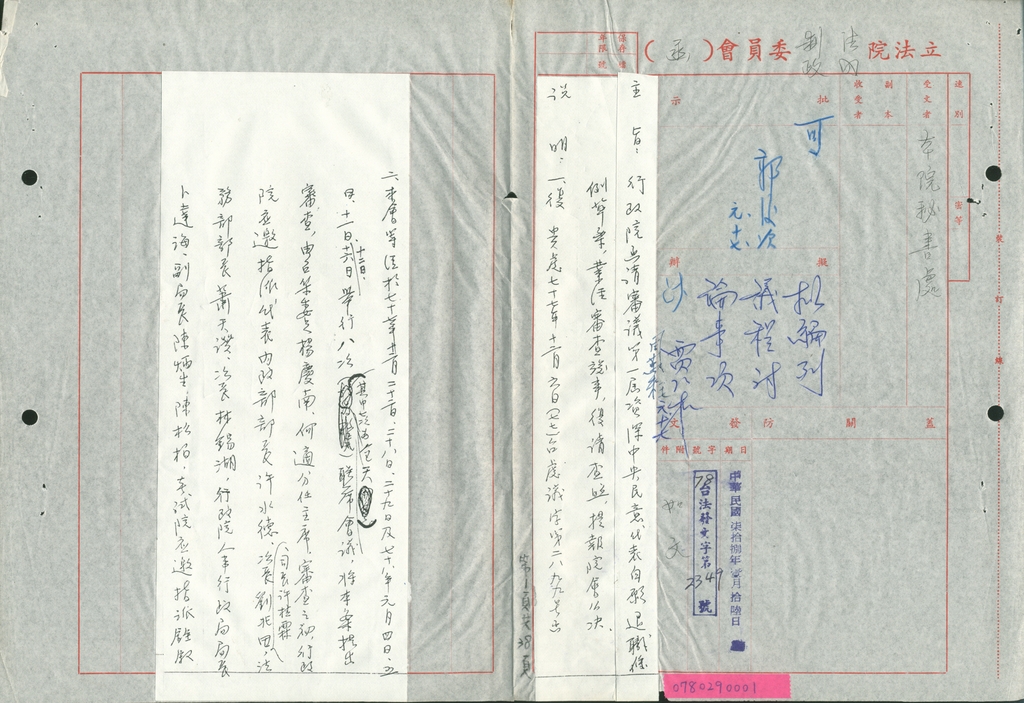 立法院 法制 內政 委員會（函）
保存年限
檔號
速別
密等
受文者
本院秘書處
副本收受者
批示
可
郭
元、七、
擬辦
擬編列
議程討
論事次
文
發
防
關
蓋
日期
字號
附件
中華民國柒拾捌年壹月拾陸日
78台法發文字第2349號
如文
裝
訂
線
主 旨：行政院函請審議第一屆資深中央民意代表自願退職條
例草案，業經審查竣事，復請查照，提報院會公決。
說 明：一、復 貴處七十七年十二月六日(77)台處議字第二八九九號函
二、本會等經於七十七年十二月二十二日、二十八日、二十九日及七十八年元月四日、五
日、十一日、十二日、十六日舉行八次（其中六次為全天）聯席會議，將本案提出
審查，由召集委員楊慶南、何適分任主席，審查之初，行政
院應邀指派代表內政部部長許水德、次長劉兆田、司長許桂霖、法
務部部長蕭天讚、次長林錫湖，行政院人事行政局局長
卜達海、副局長陳炳生、陳松柏，考試院應邀指派銓敘
第1頁共38頁
0780290001